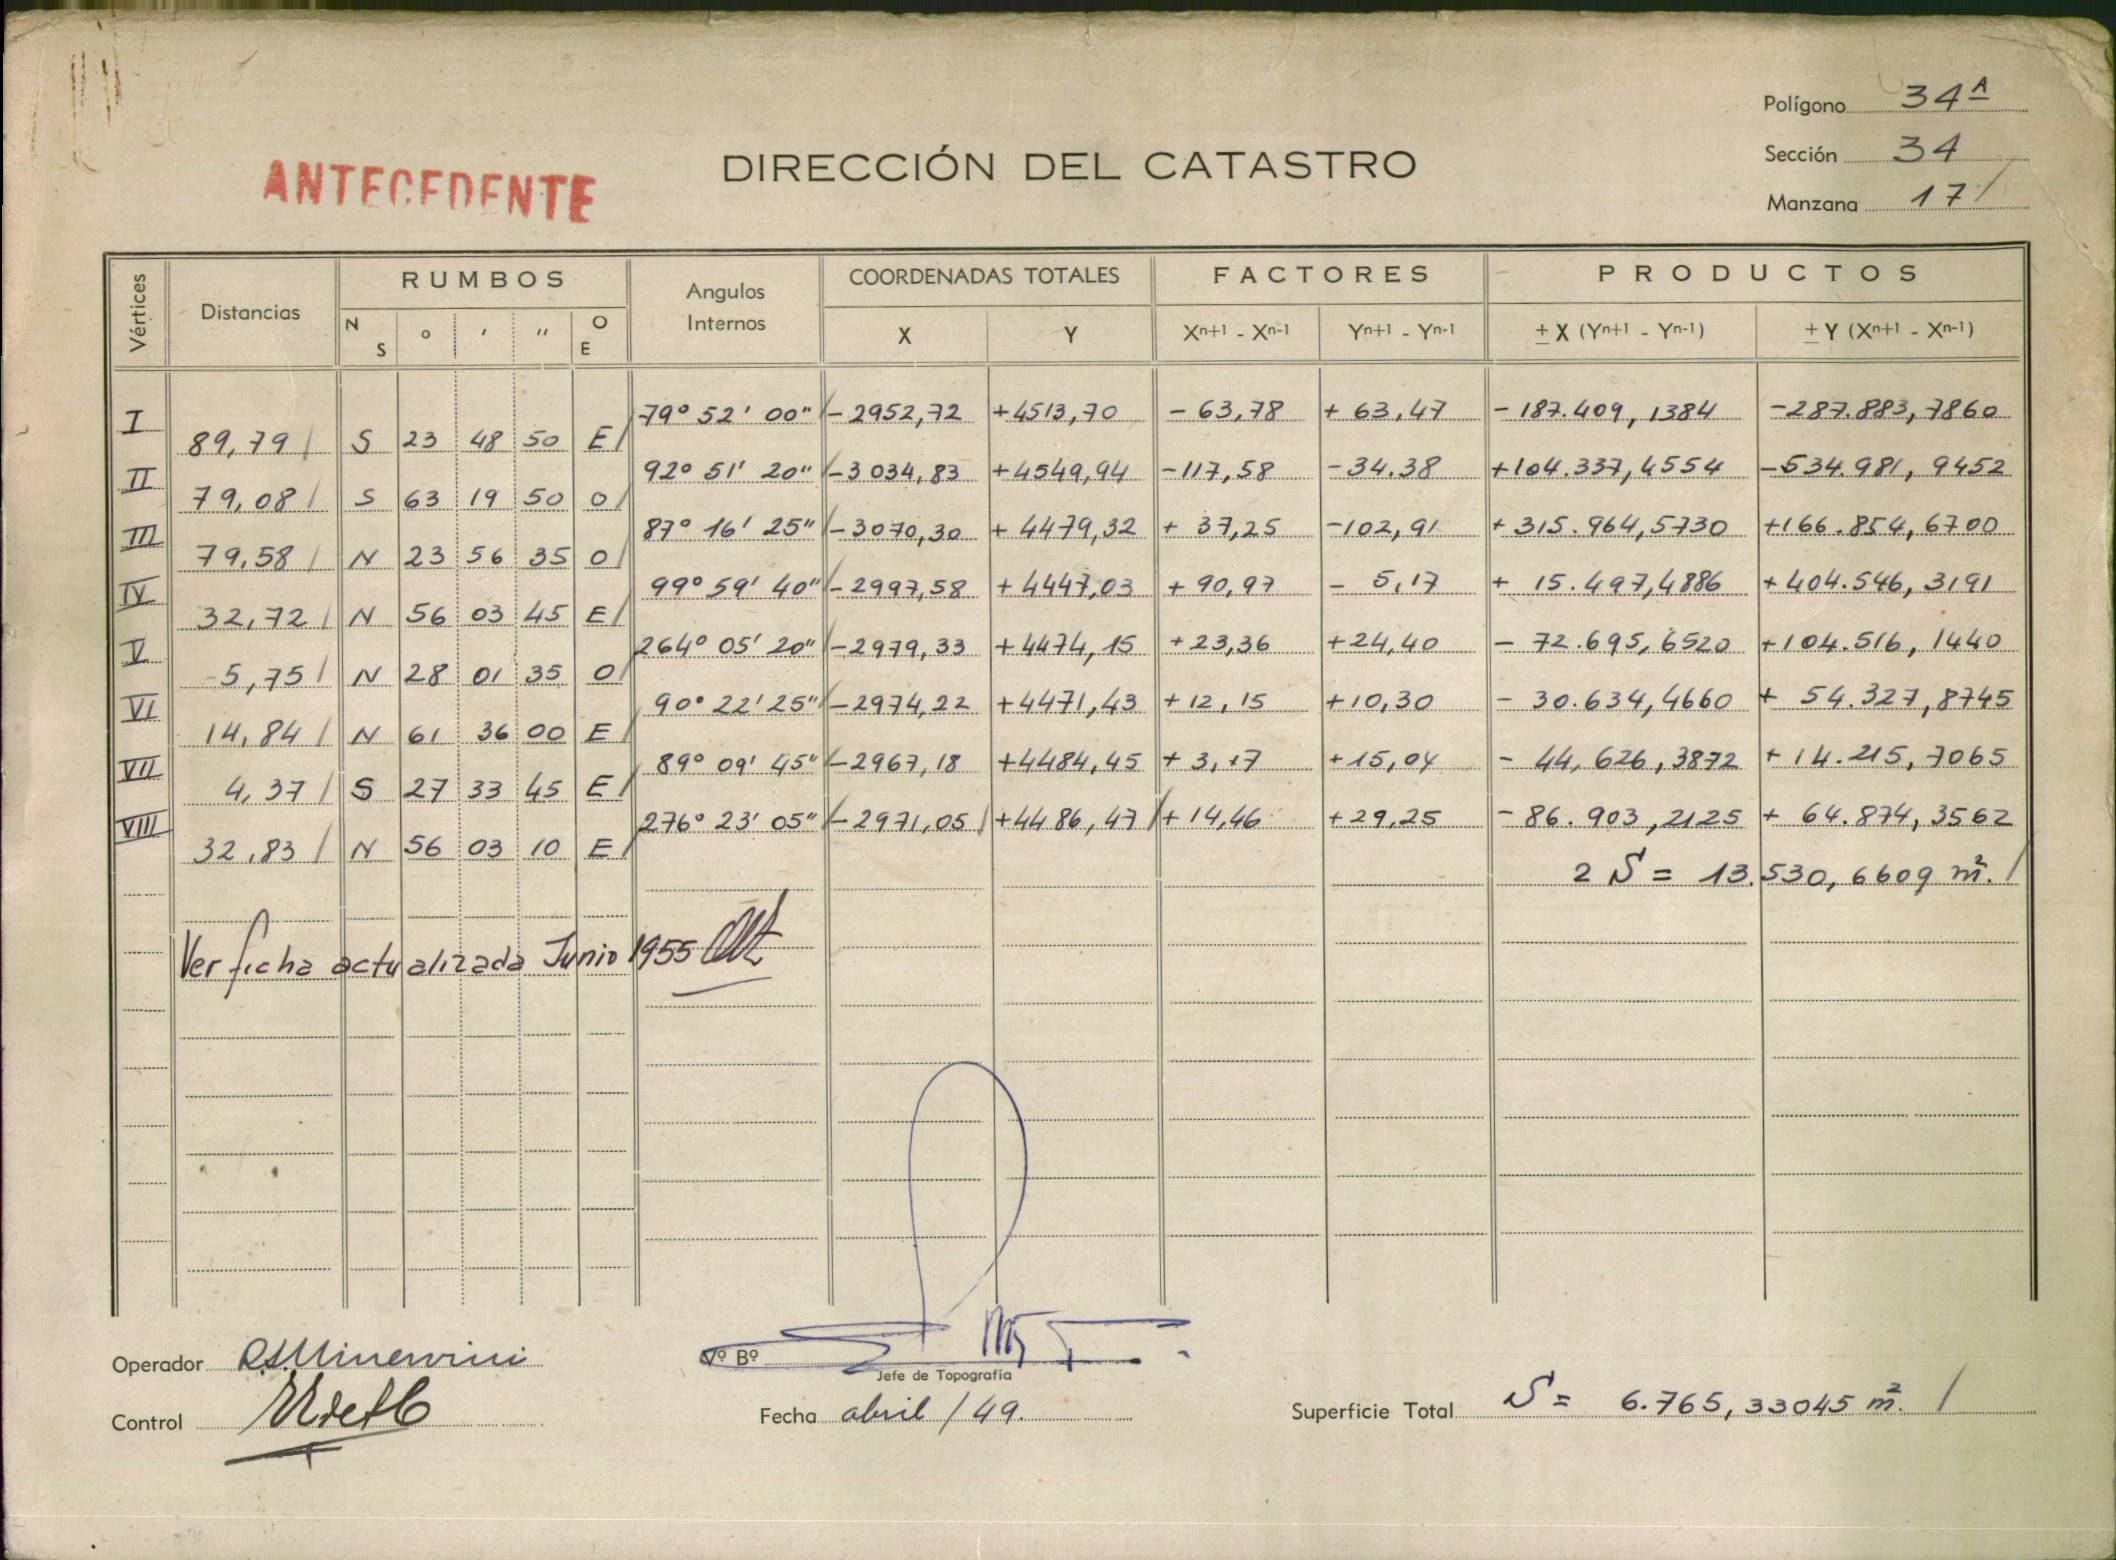 Polígono 34ᴬ
Sección 34
Manzana 17 /
ANTECEDENTE
DIRECCIÓN DEL CATASTRO
Vértices Distancias RUMBOS Angulos Internos COORDENADAS TOTALES FACTORES PRODUCTOS
N S ° ′ ″ O E X Y Xⁿ⁺¹ - Xⁿ⁻¹ Yⁿ⁺¹ - Yⁿ⁻¹ ± X (Yⁿ⁺¹ - Yⁿ⁻¹) ± Y (Xⁿ⁺¹ - Xⁿ⁻¹)
I 79° 52' 00" / - 2952,72 +4513,70 - 63,78 + 63,47 - 187.409,1384 -287.883,7860
89,79 / S 23 48 50 E /
II 92° 51' 20" / -3034,83 +4549,94 -117,58 -34.38 +104.337,4554 -534.981,9452
79,08 / S 63 19 50 O /
III 87° 16' 25" / -3070,30 + 4479,32 + 37,25 -102,91 + 315.964,5730 +166.854,6700
79,58 / N 23 56 35 O /
IV 99° 59' 40" / -2997,58 + 4447,03 + 90,97 - 5,17 + 15.497,4886 + 404.546,3191
32,72 / N 56 03 45 E /
V 264° 05' 20" / -2979,33 +4474,15 +23,36 +24,40 - 72.695,6520 +104.516,1440
5,75 / N 28 01 35 O /
VI 90° 22' 25" / -2974,22 +4471,43 +12,15 +10,30 - 30.634,4660 + 54.327,8745
14,84 / N 61 36 00 E /
VII 89° 09' 45" / -2967,18 +4484,45 + 3,17 +15,04 - 44,626,3872 + 14.215,7065
4,37 / S 27 33 45 E /
VIII 276° 23' 05" / -2971,05 / +4486,47 / + 14,46 +29,25 - 86.903,2125 + 64.874,3562
32,83 / N 56 03 10 E /
2 S = 13.530,6609 m². /
Ver ficha actualizada Junio 1955
Operador
Vº Bº
Jefe de Topografía
Control
Fecha abril / 49.
Superficie Total S = 6.765,33045 m². /